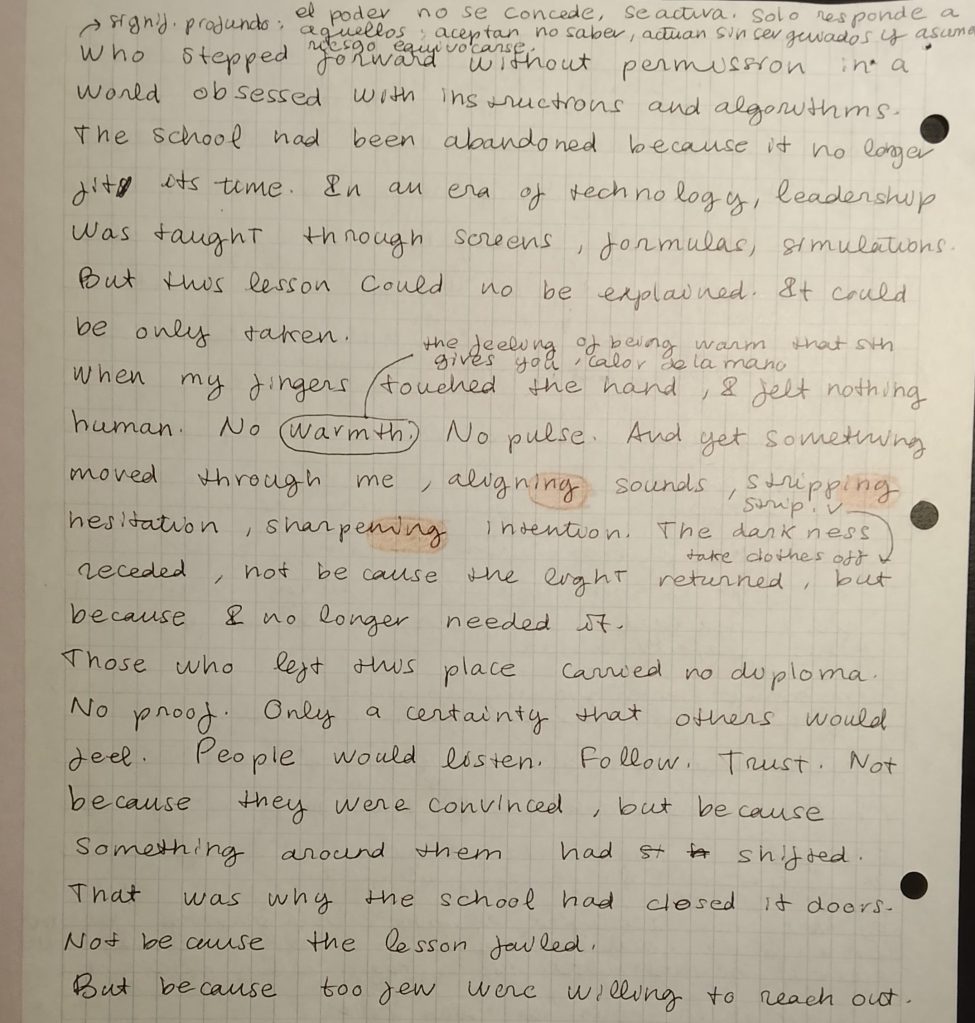 → signif. profundo: el poder no se concede, se activa. Solo responde a
aquellos: aceptan no saber, actúan sin ser guiados y asume
riesgo equivocarse.
who stepped forward without permission in a
world obsessed with instructions and algorithms.
The school had been abandoned because it no longer
fits its time. In an era of technology, leadership
was taught through screens, formulas, simulations.
But this lesson could no be explained. It could
be only taken.
the feeling of being warm that sth
gives you, calor de la mano
When my fingers touched the hand, I felt nothing
human. No warmth. No pulse. And yet something
moved through me, aligning sounds, stripping
strip: v
hesitation, sharpening intention. The darkness
take clothes off
receded, not because the light returned, but
because I no longer needed it.
Those who left this place carried no diploma.
No proof. Only a certainty that others would
feel. People would listen. Follow. Trust. Not
because they were convinced, but because
something around them had shifted.
That was why the school had closed it doors.
Not because the lesson failed.
But because too few were willing to reach out.